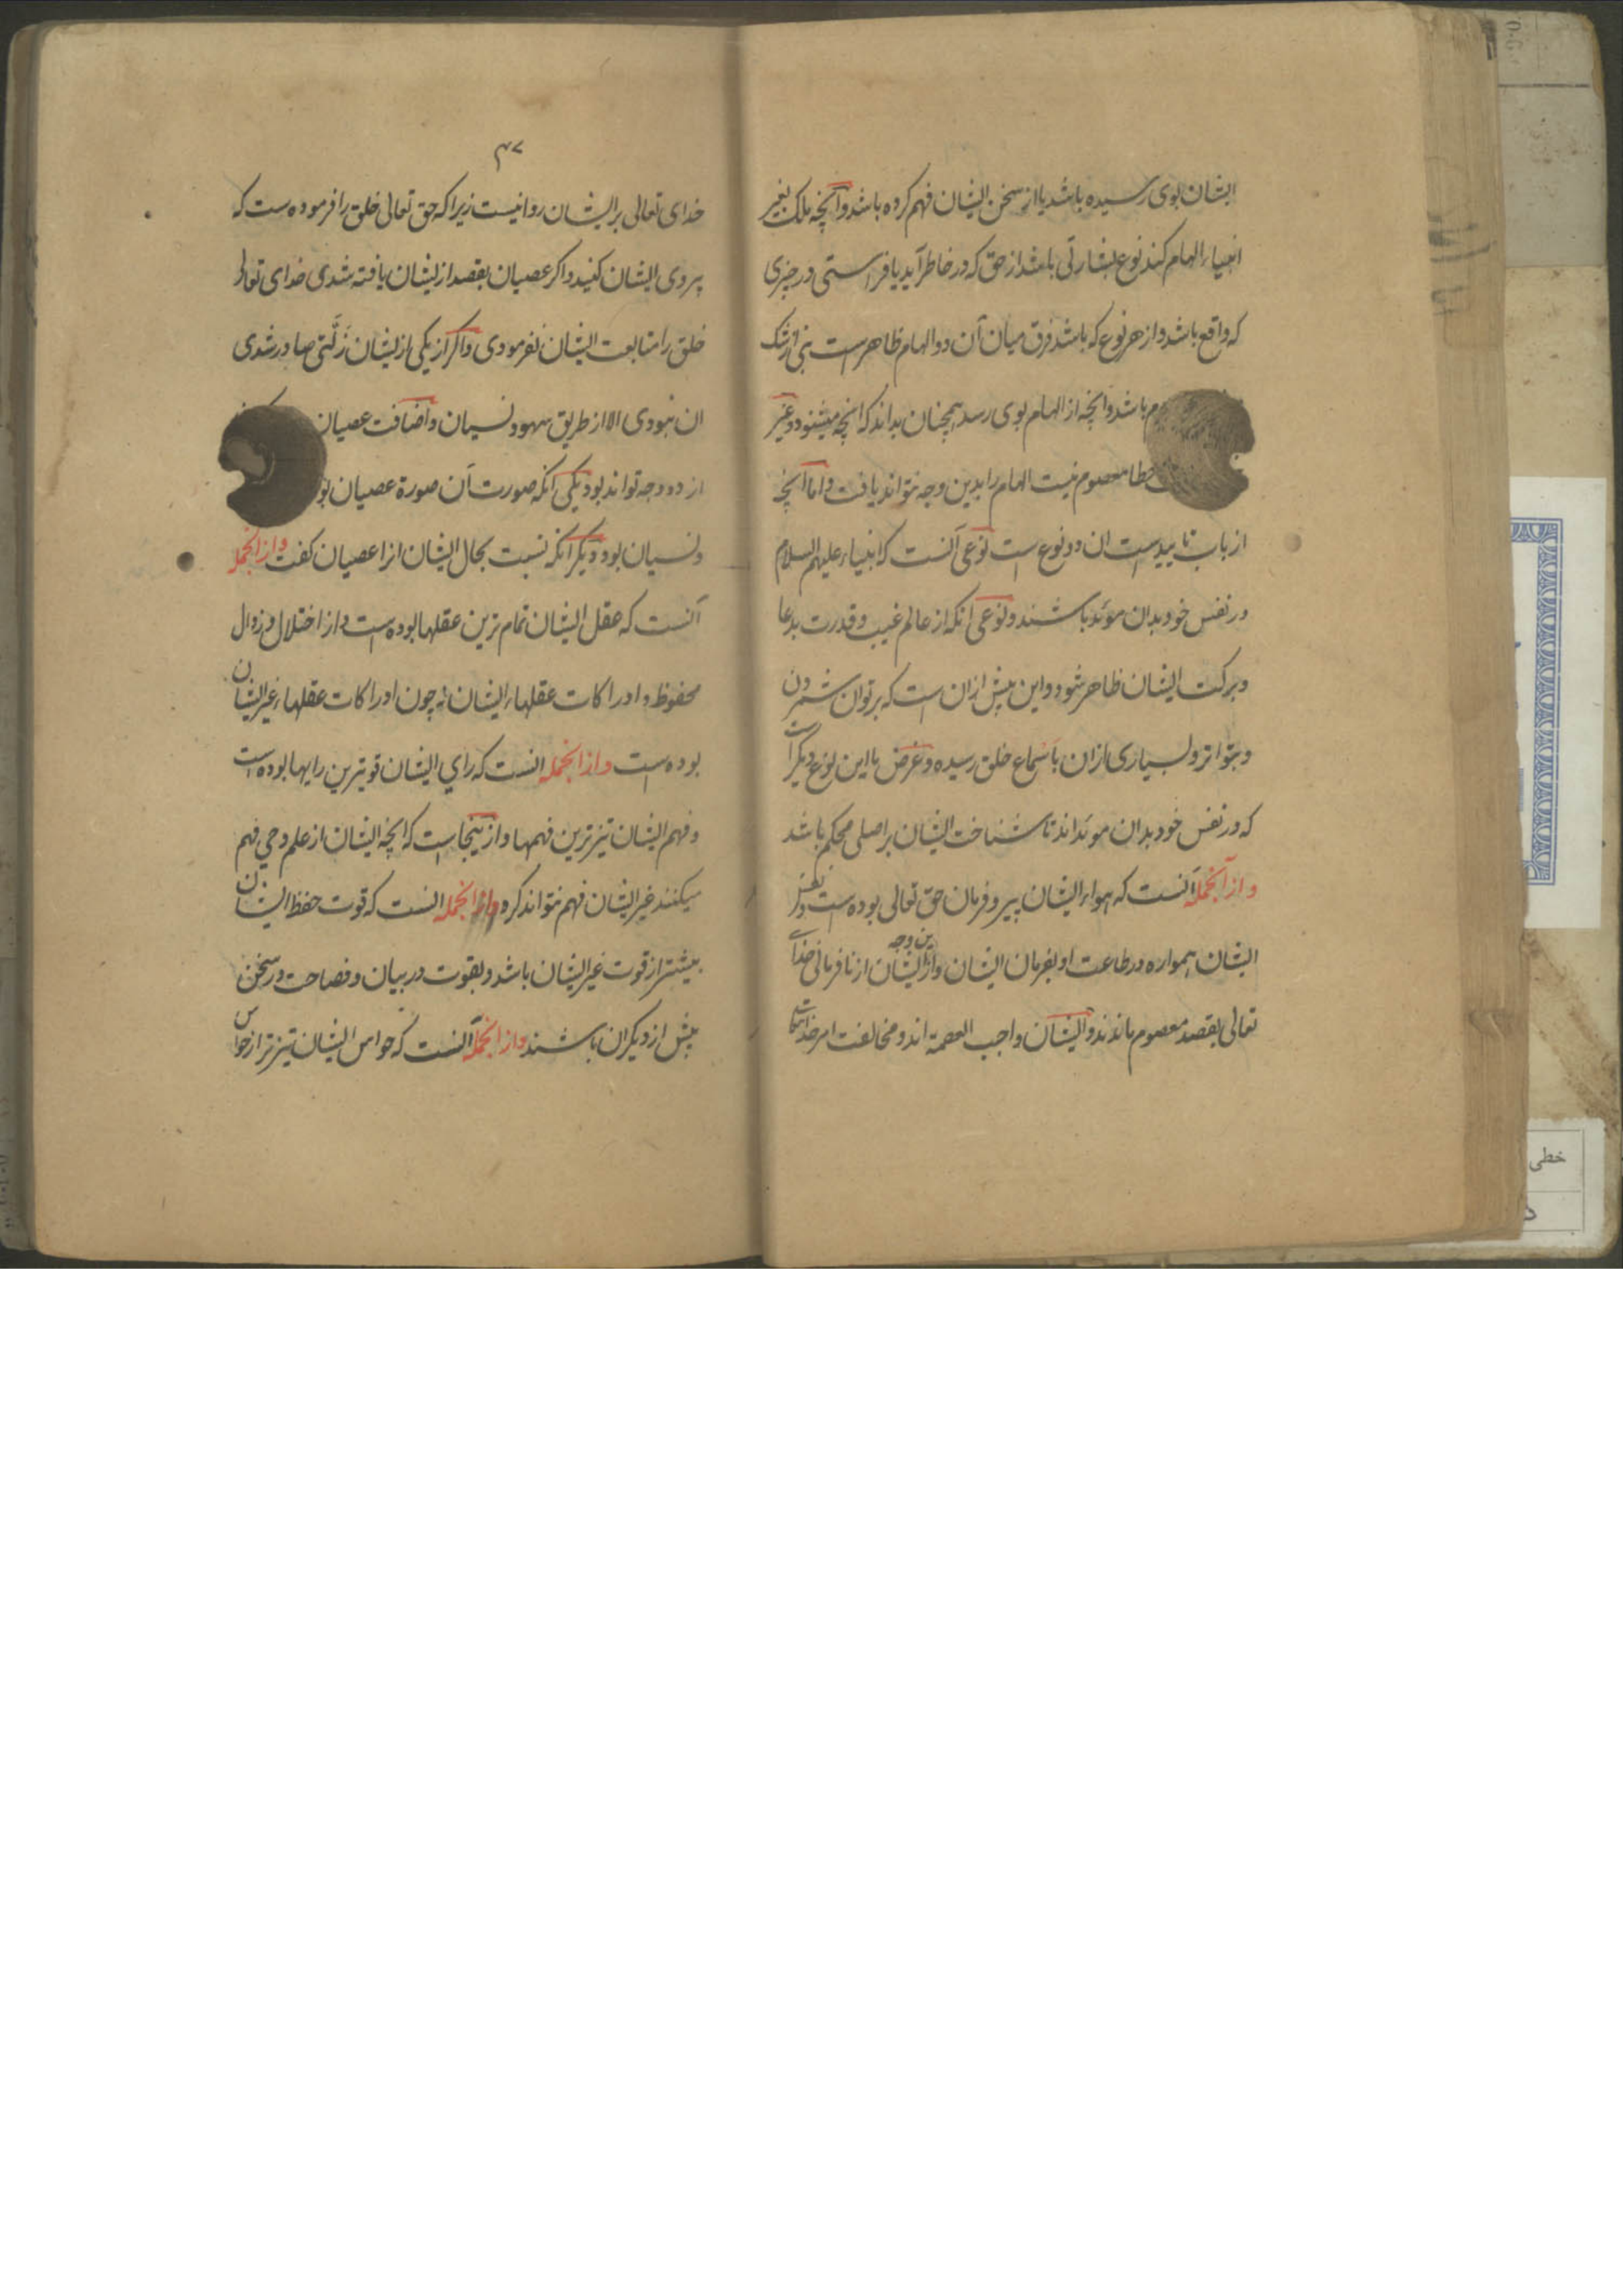 ایشان بوی رسیده باشد یا از سخن ایشان فهم کرده باشد و آنچه ملک بغیر
انبیاء الهام کند نوع بشارتی باشد از حق که در خاطر آید یا فراستی در چیزی
که واقع باشد و از هر نوع که باشد فرق میان آن دو الهام ظاهرست نبی از شک
باشد و آنچه از الهام بوی رسد همچنان بداند که آنچه میشنود و غیر
خطا معصوم نیست الهام را بدین وجه نتواند یافت و اما آنچه
از باب تاییدست ان دو نوع است نوعی آنست که انبیاء علیهم السلام
در نفس خود بدان موید باشند و نوعی آنکه از عالم غیب و قدرت بدعا
و برکت ایشان ظاهر شود و این بیش ازان است که بر توان شمردن
و بتواتر و بسیاری ازان باسماع خلق رسیده و غرض ما این نوع دیگر است
که در نفس خود بدان موید اند تا شناخت ایشان بر اصلی محکم باشد
و از آنجمله آنست که هواء ایشان پیرو فرمان حق تعالی بوده است و نفس
ایشان همواره در طاعت او بفرمان ایشان و ازین وجه ایشان از نافرمانی خدای
تعالی بقصد معصوم ماندند و ایشان واجب العصمة اند و مخالفت امر
۴۷
خدای تعالی بر ایشان روا نیست زیرا که حق تعالی خلق را فرموده ست که
پیروی ایشان کنید و اکر عصیان بقصد از یشان یافته شدی خدای تعالی
خلق را متابعت ایشان نفرمودی و اکر از یکی از یشان زَلَّتی صادر شدی
ان نبودی الا از طریق سهو و نسیان و اضافت عصیان
از دو وجه تواند بود یکی آنکه صورت آن صورة عصیان
و نسیان بود و دیکر آنکه نسبت بحال ایشان انرا عصیان کفت و از آنجمله
آنست که عقل ایشان تمام ترین عقلها بوده است و از اختلال و زوال
محفوظ و ادراکات عقلهاء ایشان نه چون ادراکات عقلهاء غیر ایشان
بوده است و از انجمله انست که رای ایشان قویترین رایها بوده است
و فهم ایشان تیز ترین فهمها و از ینجاست که آنچه ایشان از علم وحی فهم
میکنند غیر ایشان فهم نتواند کرد و از انجمله انست که قوت حفظ ایشان
بیشتر از قوت غیر ایشان باشد و بقوت در بیان و فصاحت در سخن
بیش از دیکران باشند و از انجمله آنست که حواس ایشان تیز تر از حواس
خطی